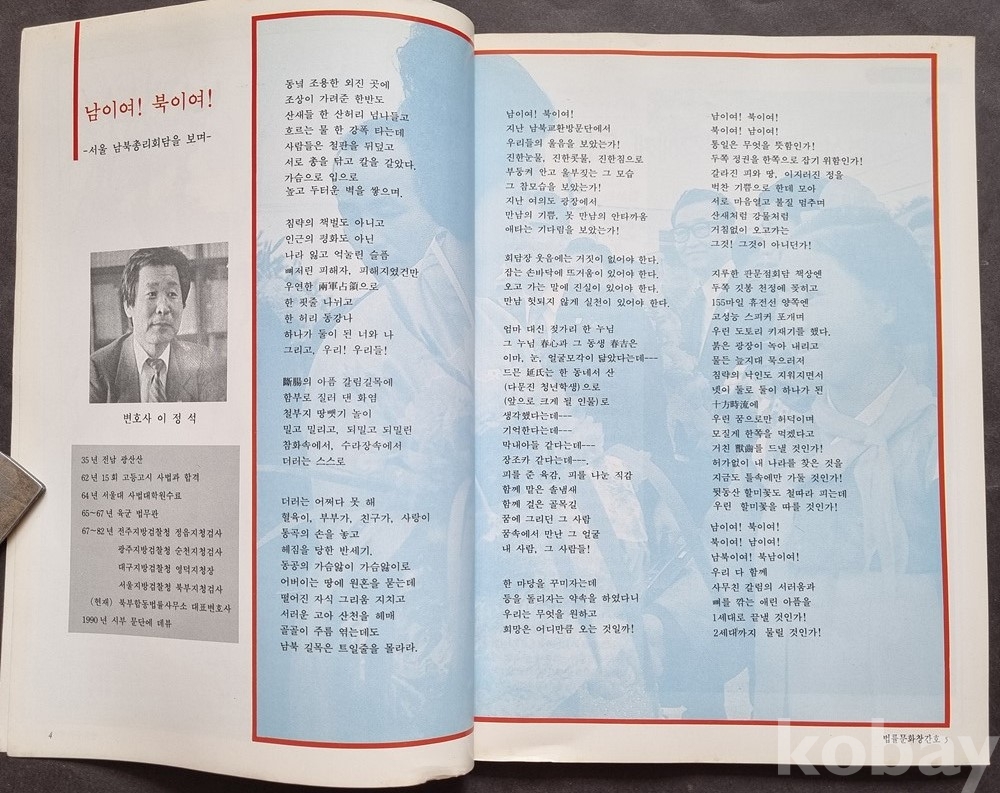 남이여! 북이여!
-서울 남북총리회담을 보며-
변호사 이 정 석
35년 전남 광산산
62년 15회 고등고시 사법과 합격
64년 서울대 사법대학원수료
65~67년 육군 법무관
67~82년 전주지방검찰청 정읍지청검사
광주지방검찰청 순천지청검사
대구지방검찰청 영덕지청장
서울지방검찰청 북부지청검사
(현재) 북부합동법률사무소 대표변호사
1990년 시부 문단에 데뷰
4
동녘 조용한 외진 곳에
조상이 가려준 한반도
산새들 한 산허리 넘나들고
흐르는 물 한 강폭 타는데
사람들은 철판을 뒤덮고
서로 총을 닦고 칼을 갈았다.
가슴으로 입으로
높고 두터운 벽을 쌓으며.
침략의 책벌도 아니고
인근의 평화도 아닌
나라 잃고 억눌린 슬픔
뼈저린 피해자, 피해지였건만
우연한 兩軍占領으로
한 핏줄 나뉘고
한 허리 동강나
하나가 둘이 된 너와 나
그리고, 우리! 우리들!
斷腸의 아픔 갈림길목에
함부로 질러 댄 화염
철부지 땅뺏기 놀이
밀고 밀리고, 되밀고 되밀린
참화속에서, 수라장속에서
더러는 스스로
더러는 어쩌다 못 해
혈육이, 부부가, 친구가, 사랑이
통곡의 손을 놓고
헤짐을 당한 반세기.
동공의 가슴앓이 가슴앓이로
어버이는 땅에 원혼을 묻는데
떨어진 자식 그리움 지치고
서러운 고아 산천을 헤매
골골이 주름 엮는데도
남북 길목은 트일줄을 몰라라.
남이여! 북이여!
지난 남북교환방문단에서
우리들의 울음을 보았는가!
진한눈물, 진한콧물, 진한침으로
부둥켜 안고 울부짖는 그 모습
그 참모습을 보았는가!
지난 여의도 광장에서
만남의 기쁨, 못 만남의 안타까움
애타는 기다림을 보았는가!
회담장 웃음에는 거짓이 없어야 한다.
잡는 손바닥에 뜨거움이 있어야 한다.
오고 가는 말에 진실이 있어야 한다.
만남 헛되지 않게 실천이 있어야 한다.
엄마 대신 젖가리 한 누님
그 누님 春心과 그 동생 春吉은
이마, 눈, 얼굴모각이 닮았다는데---
드믄 延氏는 한 동네서 산
(다문진 청년학생)으로
(앞으로 크게 될 인물)로
생각했다는데---
기억한다는데---
막내아들 같다는데---
장조카 같다는데---.
피를 준 육감, 피를 나눈 직감
함께 맡은 솔냄새
함께 걸은 골목길
꿈에 그리던 그 사람
꿈속에서 만난 그 얼굴
내 사람, 그 사람들!
한 마당을 꾸미자는데
등을 돌리자는 약속을 하였다니
우리는 무엇을 원하고
희망은 어디만큼 오는 것일까!
남이여! 북이여!
북이여! 남이여!
통일은 무엇을 뜻함인가!
두쪽 정권을 한쪽으로 잡기 위함인가!
갈라진 피와 땅, 이지러진 정을
벅찬 기쁨으로 한데 모아
서로 마음열고 불질 멈추며
산새처럼 강물처럼
거침없이 오고가는
그것! 그것이 아니던가!
지루한 판문점회담 책상엔
두쪽 깃봉 천정에 꽂히고
155마일 휴전선 양쪽엔
고성능 스피커 포개며
우린 도토리 키재기를 했다.
붉은 광장이 녹아 내리고
물든 늪지대 묵으러저
침략의 낙인도 지워지면서
넷이 둘로 둘이 하나가 된
十方時流에
우린 꿈으로만 허덕이며
모질게 한쪽을 먹겠다고
거친 獸齒를 드낼 것인가!
허가없이 내 나라를 찾은 것을
지금도 틀속에만 가둘 것인가!
뒷동산 할미꽃도 철따라 피는데
우린 할미꽃을 따를 것인가!
남이여! 북이여!
북이여! 남이여!
남북이여! 북남이여!
우리 다 함께
사무친 갈림의 서러움과
뼈를 깎는 애린 아픔을
1세대로 끝낼 것인가!
2세대까지 물릴 것인가!
법률문화창간호 5
kobay